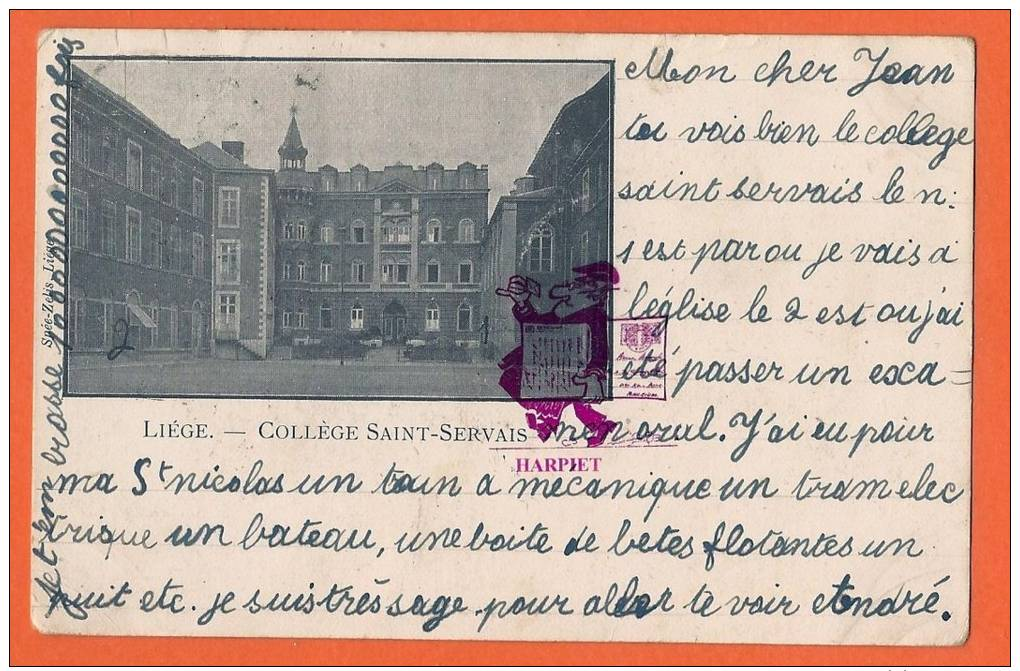 Mon cher Jean
tu vois bien le college
saint servais le n:
1 est par ou je vais a
l'église le 2 est ou j'ai
été passer un exca=
men oral. J'ai eu pour
LIÉGE. — COLLÈGE SAINT-SERVAIS
HARPIET
ma St nicolas un tain a mecanique un tram elec
trique un bateau, une boite de betes flotantes un
puit etc. je suis très sage pour aller te voir André.
Je t'em brasse
fois
Spée-Zelis, Liége
2
1